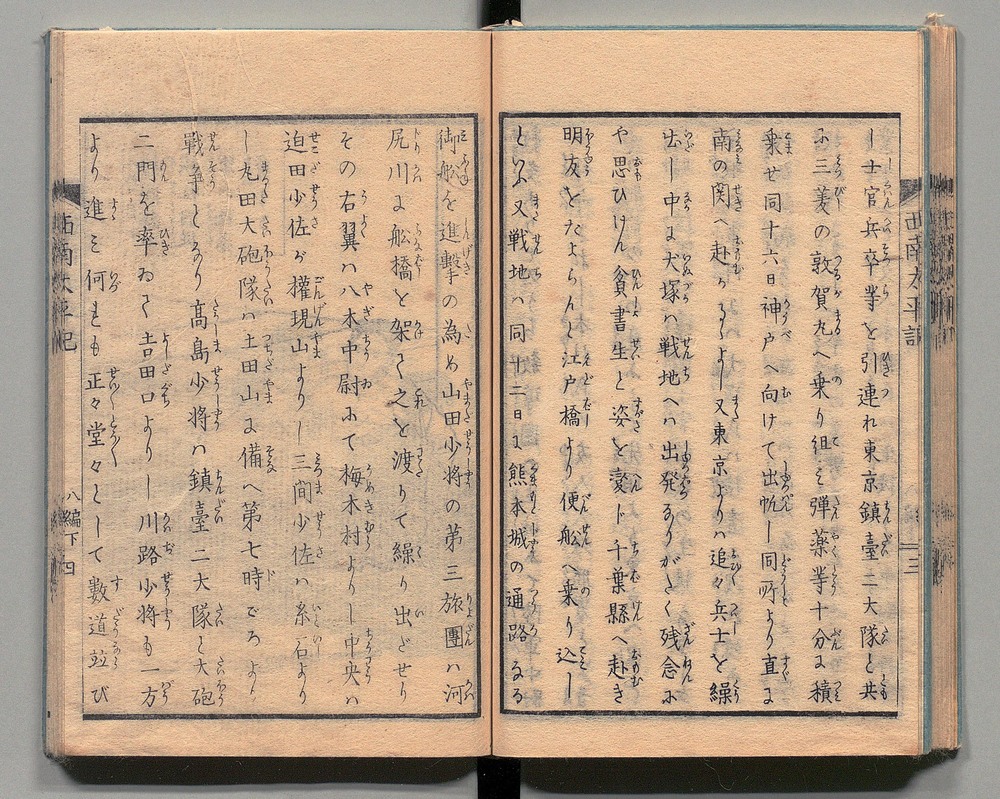 西南太平記
三
ー士官兵卒等を引連れ東京鎮臺二大隊と共
に三菱の敦賀丸へ乗り組ミ弾薬等十分に積
乗せ同十六日神戸へ向けて出帆ー同所より直に
南の関へ赴かるよー又東京よりハ追々兵士を繰
出ー中に犬塚ハ戦地へハ出発なりがたく残念に
や思ひけん貧書生と姿を変ト千葉縣へ赴き
朋友をたよらんと江戸橋より便舩へ乗り込ー
といふ又戦地ハ同十二日に熊本城の通路なる
御舩を進撃の為め山田少将の第三旅團ハ河
尻川に舩橋を架て之を渡りて繰り出だせり
その右翼ハ八木中尉にて梅木村よりー中央ハ
迫田少佐が權現山よりー三間少佐ハ糸石より
ー丸田大砲隊ハ土田山に備へ第七時ごろより
戦争となり髙島少将ハ鎮臺二大隊と大砲
二門を率ゐて吉田口よりー川路少将も一方
より進ミ何れも正々堂々とーて數道並び
西南太平記
八編下
四